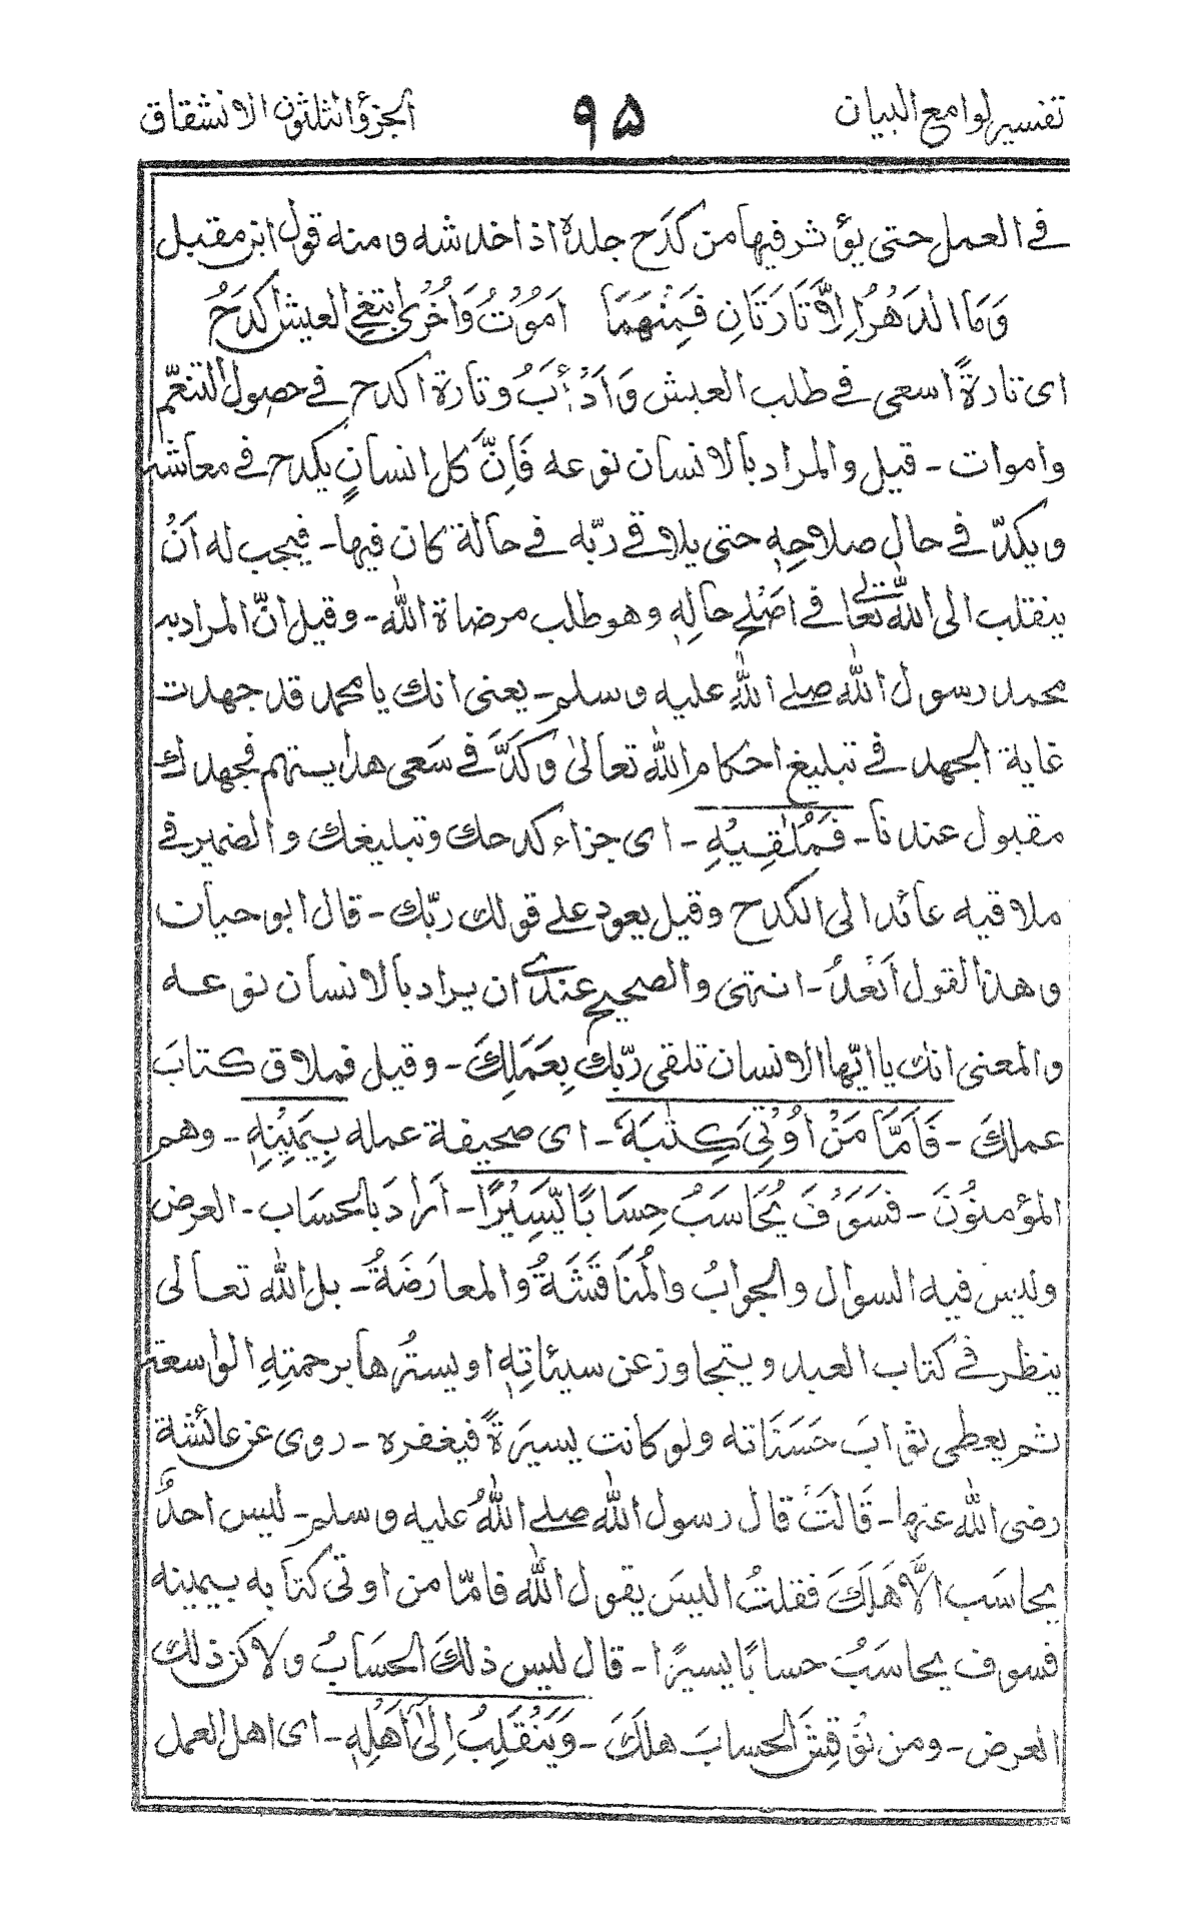 تفسير لوامع البيان ٩٥ الجزؤ الثلثون الانشقاق
فى العمل حتى يؤثر فيها من كدَح جلدهٗ اذا خدشه ومنه قول ابن مقبل
وَمَا الدَهْرُ اِلَّا تَارَتَانِ فَمِنْهُمَا اَمُوْتُ وَاُخْرٰى ابتغى العيش اكدَحُ
اى تارةً اسعى فى طلب العيش وَاَدْءَبُ وتارة اكدح فى حصول التنعّم
واموات - قيل والمراد بالانسان نوعه فَاِنَّ كل انسانٍ يكدح فى معاشه
ويكدّ فى حال صلاحِهٖ حتى يلاقى ربّه فى حالة كان فيها - فيجب له اَنْ
ينقلب الى اللّٰه تعالٰى فى اصْلح حالِهٖ وهو طلب مرضاة اللّٰه - وقيل انّ المراد به
محمد رسول اللّٰه صلے اللّٰه عليه وسلم - يعنى انك يا محمد قد جهدت
غاية الجهد فى تبليغ احكام اللّٰه تعالىٰ وكَدَّ فى سَعى هذا يستهم فجهدك
مقبول عندنا - فَمُلٰقِيْهِ - اى جزاء كدحك وتبليغك والضمير فى
ملاقيه عائد الى الكدح وقيل يعود على قولك ربّك - قال ابو حيان
وهذا القول اَبْعدُ - انتهى والصحيح عندى ان يراد بالانسان نوعه
والمعنى انك يا ايّها الانسان تلقى ربّك بِعَمَلِكَ - وقيل فملاق كتابَ
عملكَ - فَاَمَّا مَنْ اُوْتِىَ كِتٰبَهٗ - اى صحيفة عمله بِيَمِيْنِهٖ - وهم
المؤمنُوْنَ - فَسَوْفَ يُحَاسَبُ حِسَابًا يَّسِيْرًا - اَرادَ بالحسَاب - العرض
وليس فيه السوال والجوابُ والمُنَاقَشَةُ والمعارَضَةُ - بل اللّٰه تعالى
ينظر فى كتاب العبد ويتجاوز عن سيئاتِهٖ او يسترُها برحمتِهِ الواسعة
ثم يعطى ثوابَ حَسَنَاته ولو كانت يسيرَةً فيغفره - روى عن عائشة
رضى اللّٰه عنها - قَالَتْ قال رسول اللّٰه صلے اللّٰهُ عليه وسلم - ليس احدٌ
يحاسَب الّا هَلَكَ فقلتُ اليسَ يقول اللّٰه فامّا من اوتى كتابه بيمينه
فسوف يحاسَبُ حسابًا يسيرًا - قال ليس ذلكَ الحسَابُ ولاكن ذلك
العرض - ومن نُوْقِشَ الحسابَ هلكَ - وَيَنْقَلِبُ اِلٰى اَهْلِهٖ - اى اهل العمل